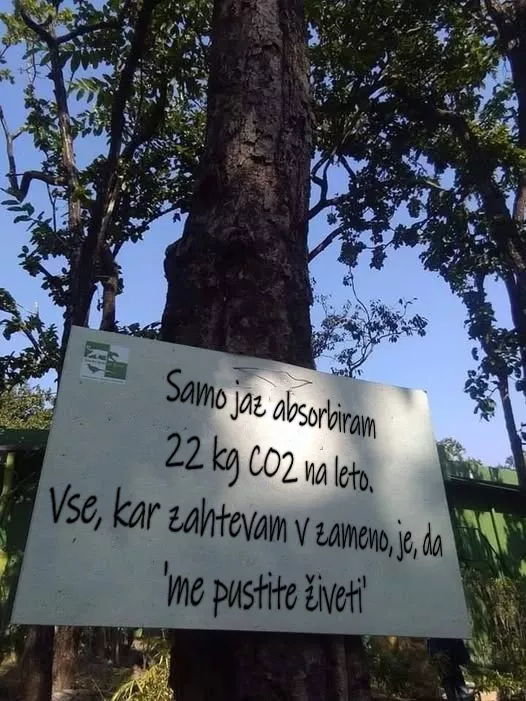 Samo jaz absorbiram
22 kg CO2 na leto.
Vse, kar zahtevam v zameno, je, da
'me pustite živeti'